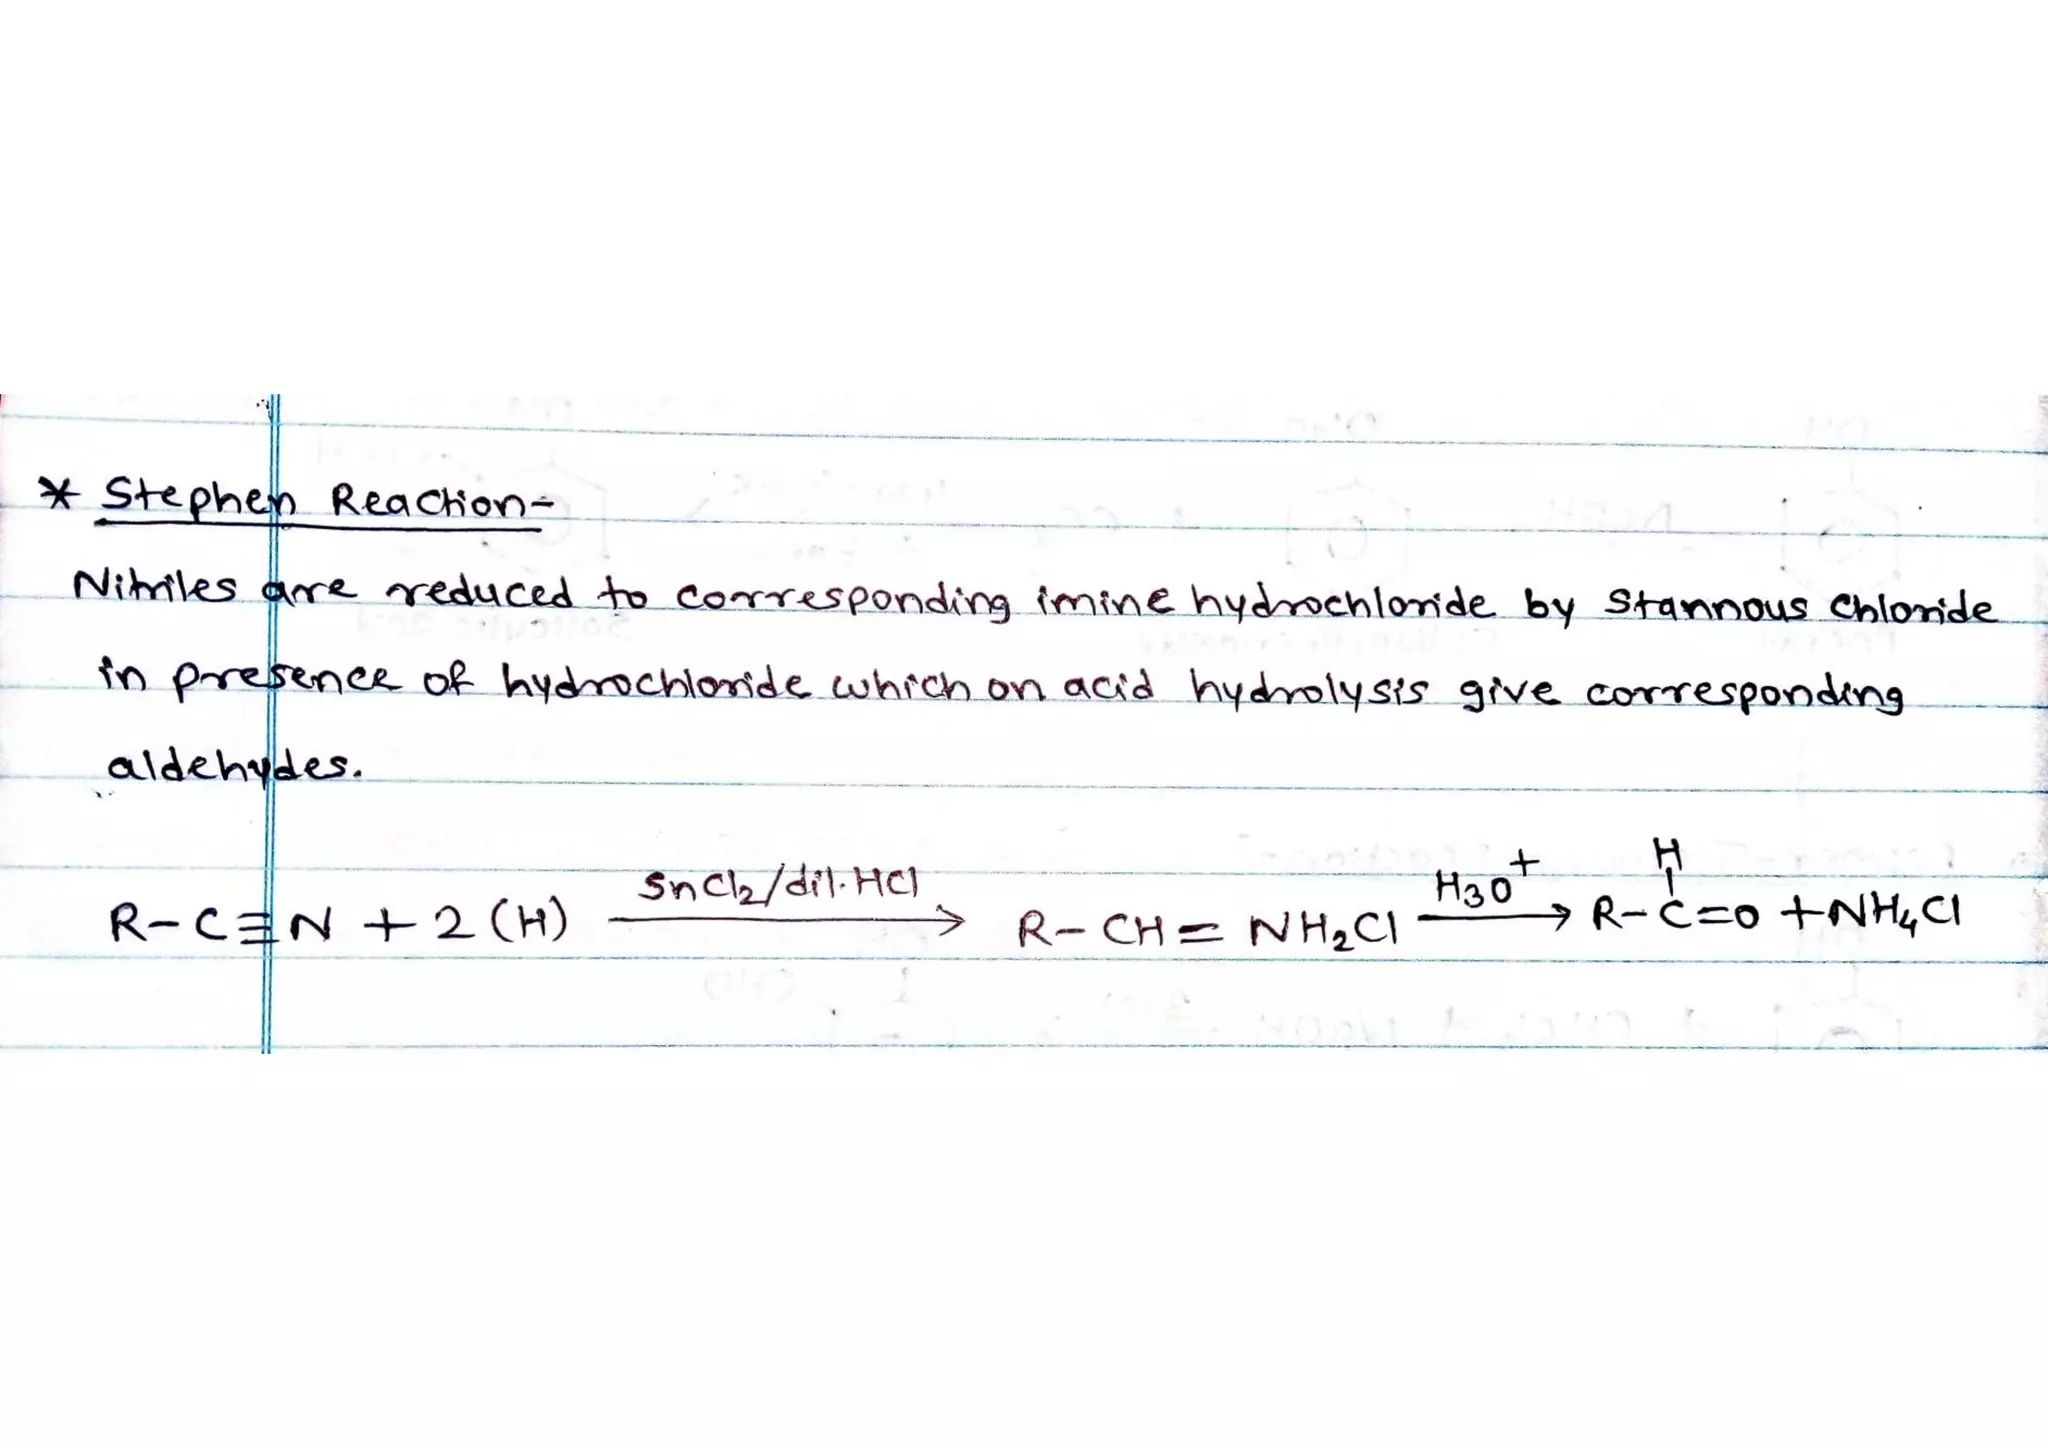 * Stephen Reaction-
Nitriles are reduced to corresponding imine hydrochloride by Stannous chloride
in presence of hydrochloride which on acid hydrolysis give corresponding
aldehydes.
R-C≡N + 2(H) —SnCl₂/dil. HCl→ R-CH=NH₂Cl —H₃O⁺→ R-C(H)=O + NH₄Cl